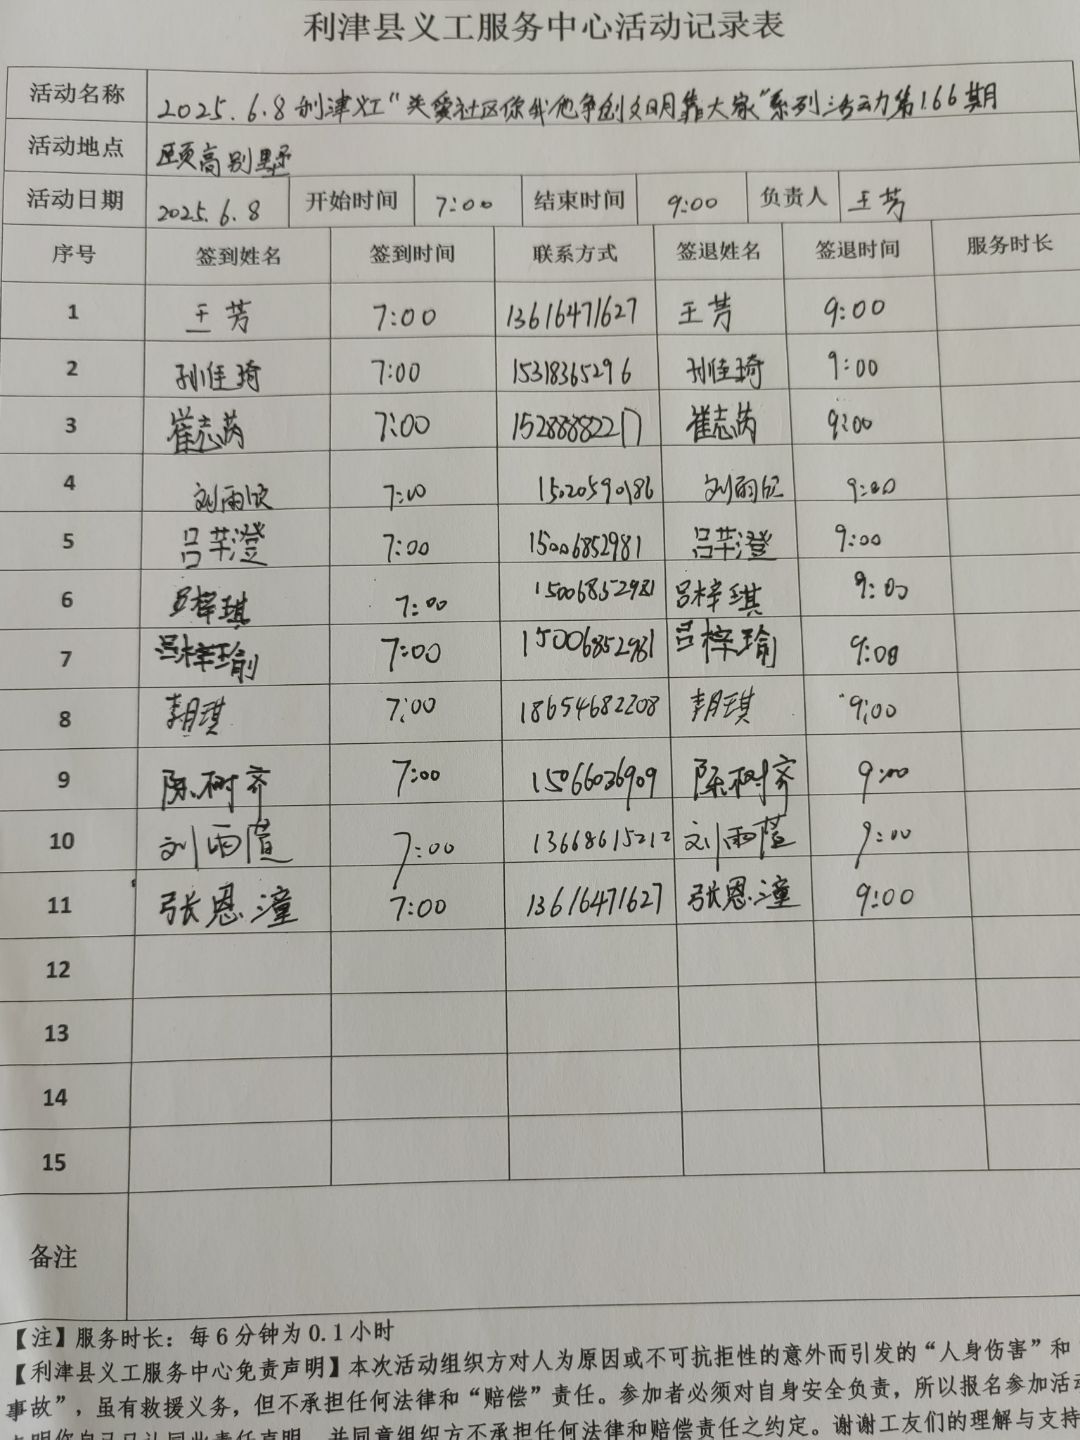 利津县义工服务中心活动记录表
活动名称 2025.6.8利津义工"关爱社区你我他争创文明靠大家"系列活动第166期
活动地点 颐高别墅
活动日期 2025.6.8 开始时间 7:00 结束时间 9:00 负责人 王芳
序号 签到姓名 签到时间 联系方式 签退姓名 签退时间 服务时长
1 王芳 7:00 13616471627 王芳 9:00
2 孙佳琦 7:00 15318365296 孙佳琦 9:00
3 崔志芮 7:00 崔志芮 9:00
4 刘雨欣 7:00 15020590186 刘雨欣 9:00
5 吕芊澄 7:00 15006852981 吕芊澄 9:00
6 吕梓琪 7:00 15006852981 吕梓琪 9:00
7 吕梓瑜 7:00 15006852981 吕梓瑜 9:00
8 7:00 18654682208 9:00
9 陈树齐 7:00 15066036909 陈树齐 9:00
10 刘雨萱 7:00 13668615212 刘雨萱 9:00
11 张恩潼 7:00 13616471627 张恩潼 9:00
12
13
14
15
备注
【注】服务时长：每6分钟为0.1小时
【利津县义工服务中心免责声明】本次活动组织方对人为原因或不可抗拒性的意外而引发的“人身伤害”和
事故”，虽有救援义务，但不承担任何法律和“赔偿”责任。参加者必须对自身安全负责，所以报名参加活动
并同意组织方不承担任何法律和赔偿责任之约定。谢谢工友们的理解与支持